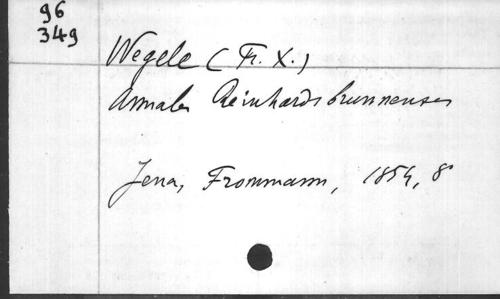 96
349
Wegele (Fr. X.)
Annales Reinhardsbrunnenses
Jena, Frommann, 1854, 8°